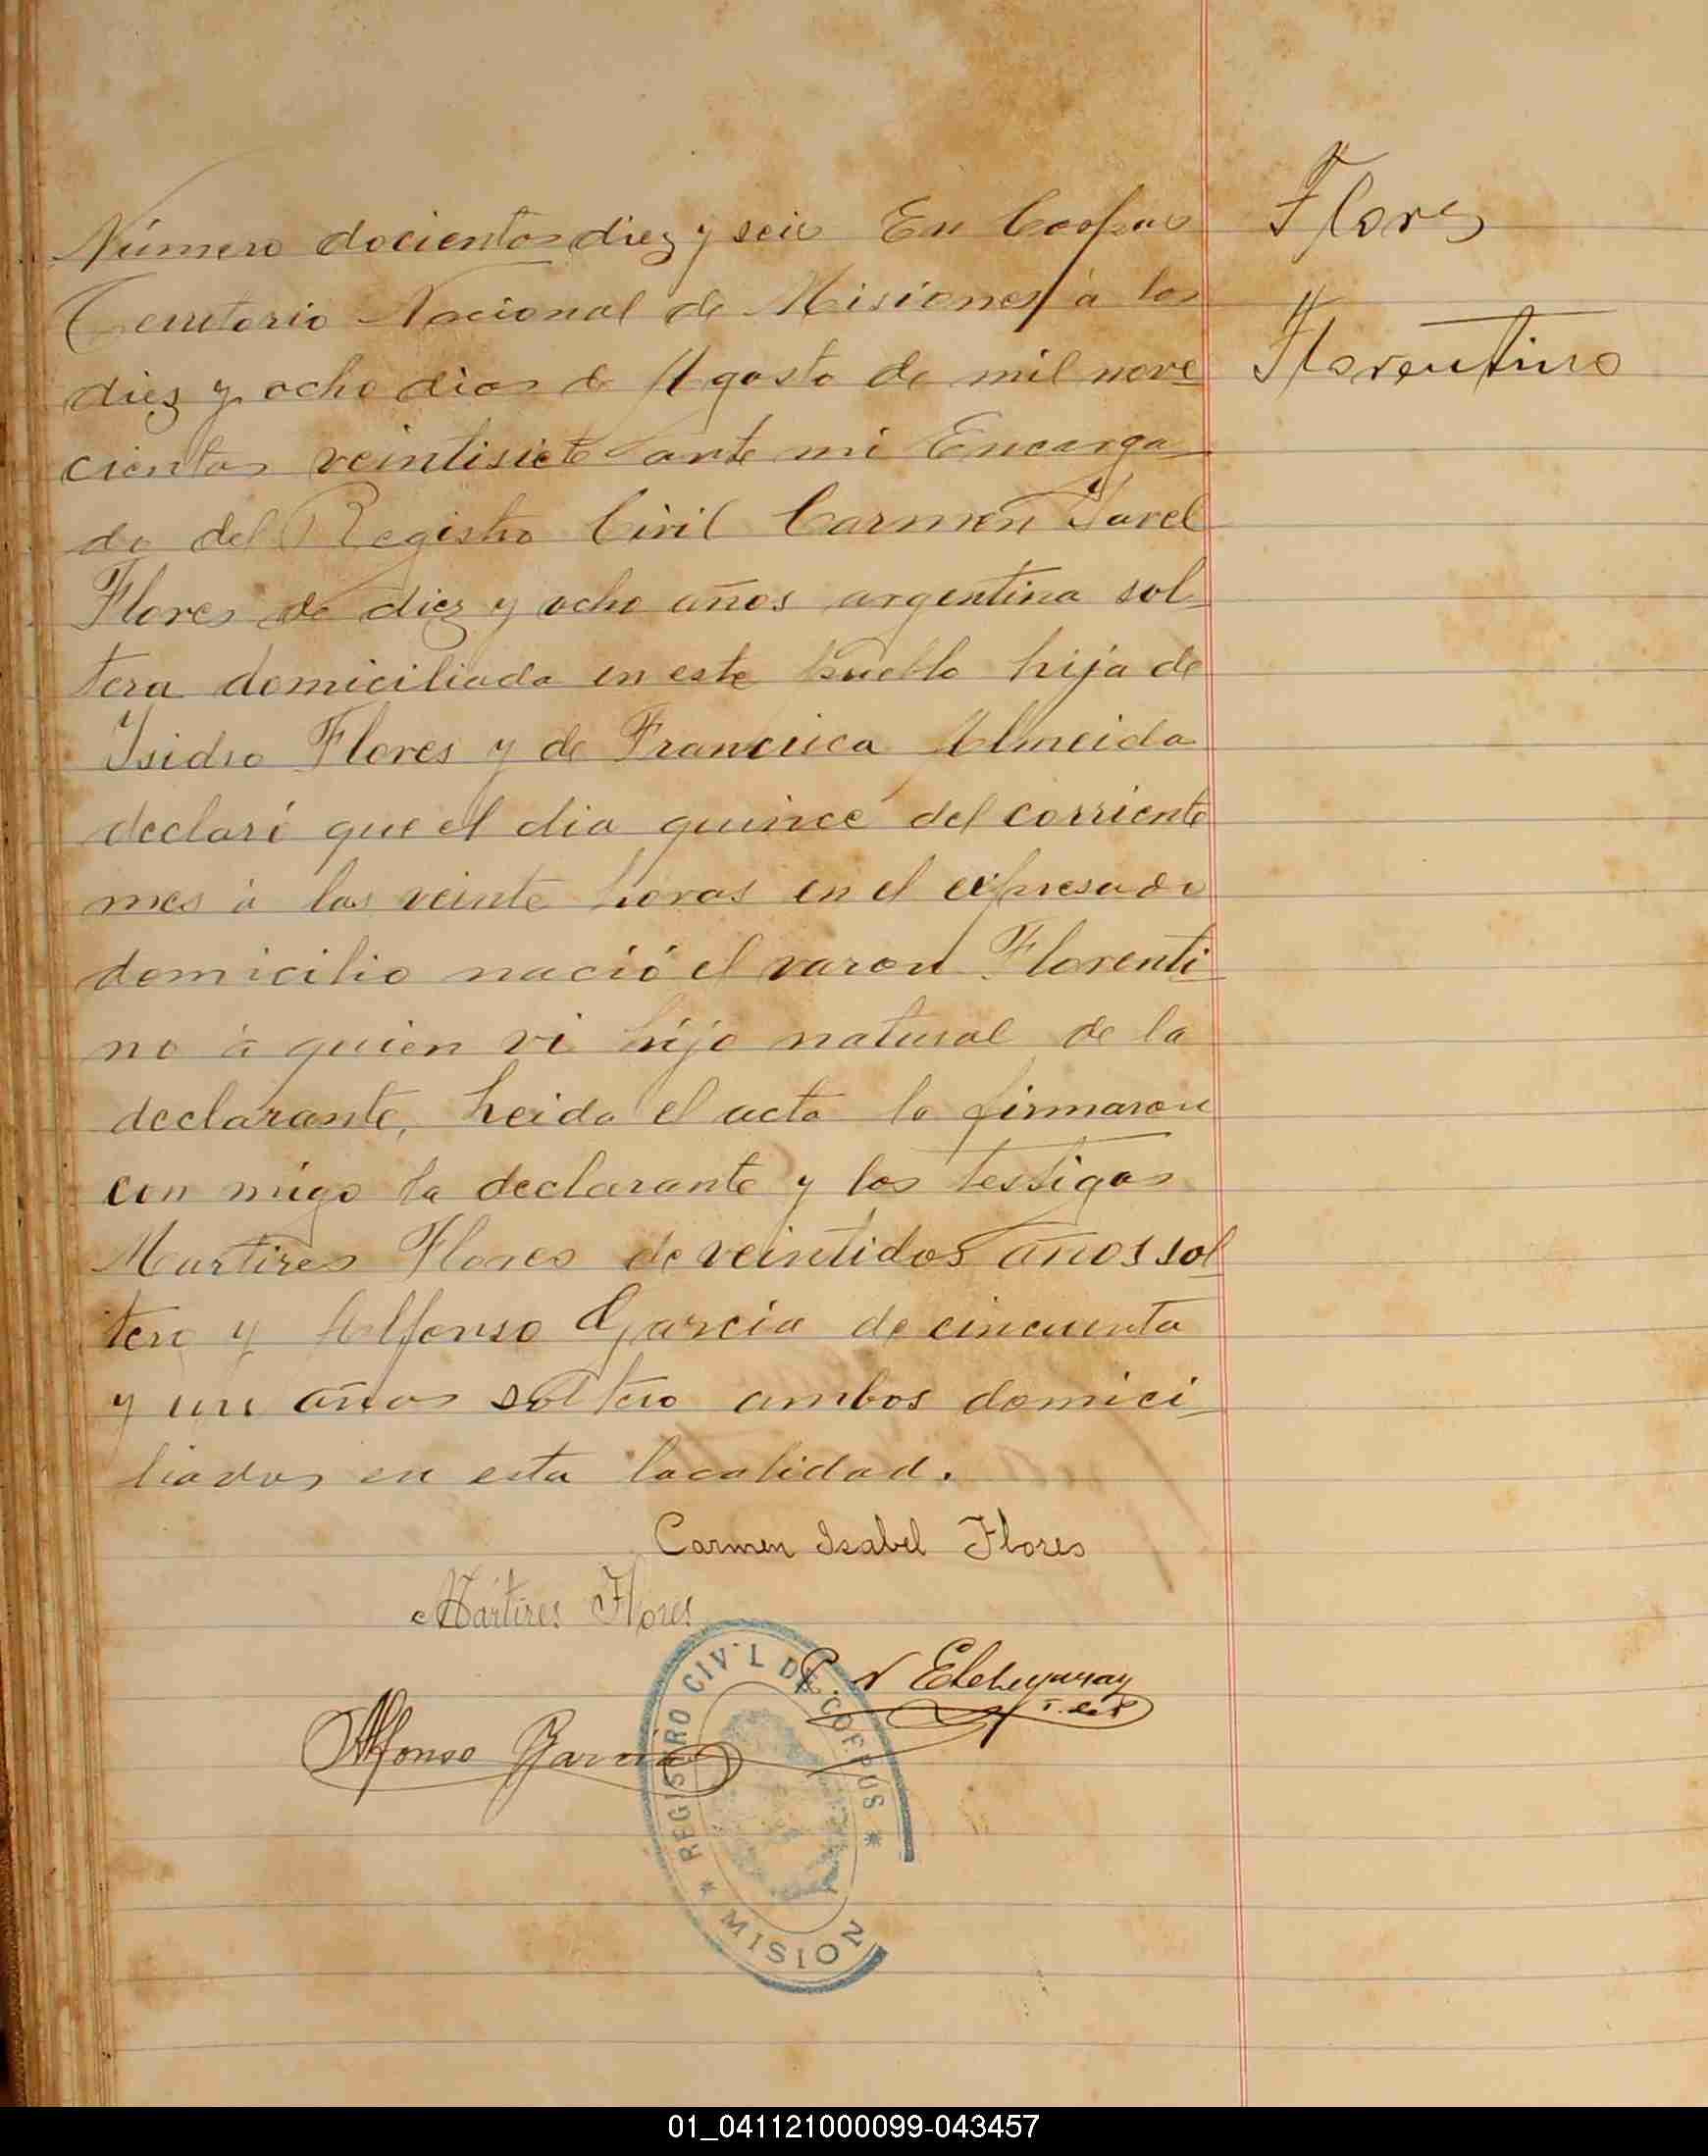 Flores
Florentino
Número docientos diez y seis En Corpus
Territorio Nacional de Misiones á los
diez y ocho dias de Agosto de mil nove
cientos veintisiete ante mi Encarga
do del Registro Civil Carmen Isabel
Flores de diez y ocho años argentina sol
tera domiciliada en este pueblo hija de
Isidro Flores y de Francisca Almeida
declaró que el dia quince del corriente
mes á las veinte horas en el expresado
domicilio nació el varon Florenti
no á quien vi hijo natural de la
declarante, Leida el acta la firmaron
con migo la declarante y los testigos
Martires Flores de veintidos años sol
tero y Alfonso Garcia de cincuenta
y un años soltero ambos domici
liados en esta localidad.
Carmen Isabel Flores
Mártires Flores
Etchegaray
Alfonso Garcia
REGISTRO CIVIL DE CORPUS
MISION
01_041121000099-043457